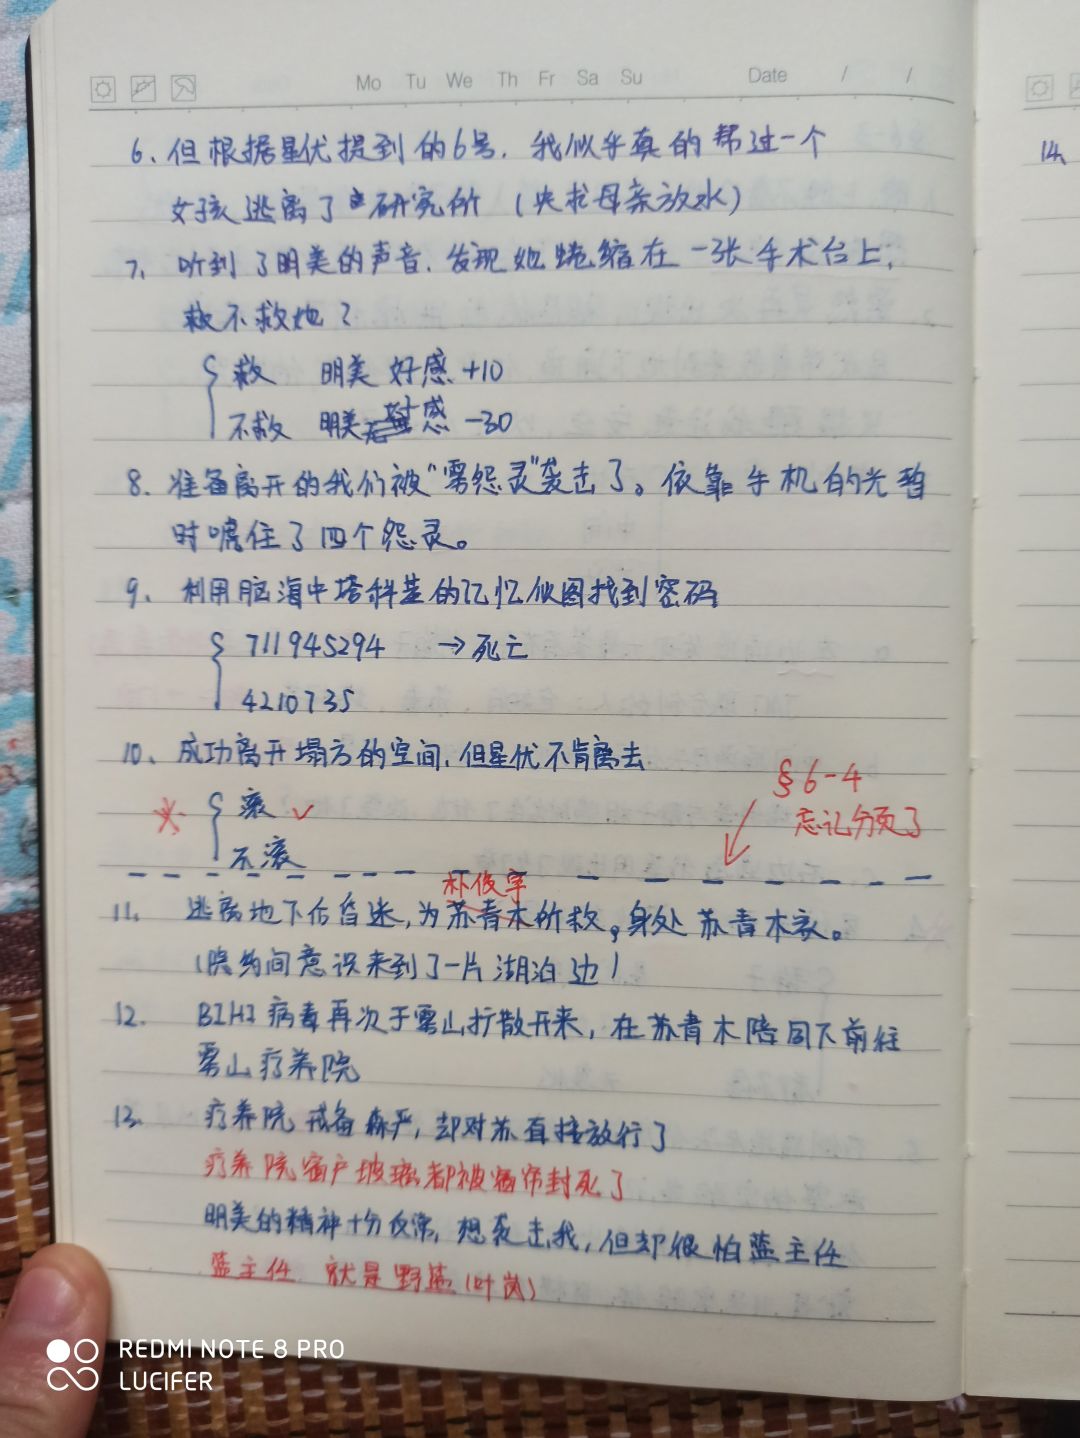 Mo Tu We Th Fr Sa Su Date / /
6、但根据星优提到的6号，我似乎真的帮过一个
女孩逃离了研究所（央求母亲放水）
7、听到了明美的声音，发现她蜷缩在一张手术台上，
救不救她？
救 明美 好感 +10
不救 明美 好感 -30
8、准备离开的我们被“雾怨灵”袭击了。依靠手机的光暂
时唬住了四个怨灵。
9、利用脑海中塔科兰的记忆似图找到密码
711945294 → 死亡
4210735
10、成功离开塌方的空间，但星优不肯离去
§6-4
忘记分页了
※ 滚 ✓
不滚
朴俊宇
11、逃离地下后昏迷，为苏青木所救，身处苏青木家。
（院的间意识来到了一片湖泊边）
12、BIHI病毒再次于雾山扩散开来，在苏青木陪同下前往
雾山疗养院
13、疗养院戒备森严，却对苏直接放行了
疗养院窗户玻璃都被窗帘封死了
明美的精神十分反常，想袭击我，但却很怕蓝主任
蓝主任 就是野蓝（叶岚）
14、
REDMI NOTE 8 PRO
LUCIFER